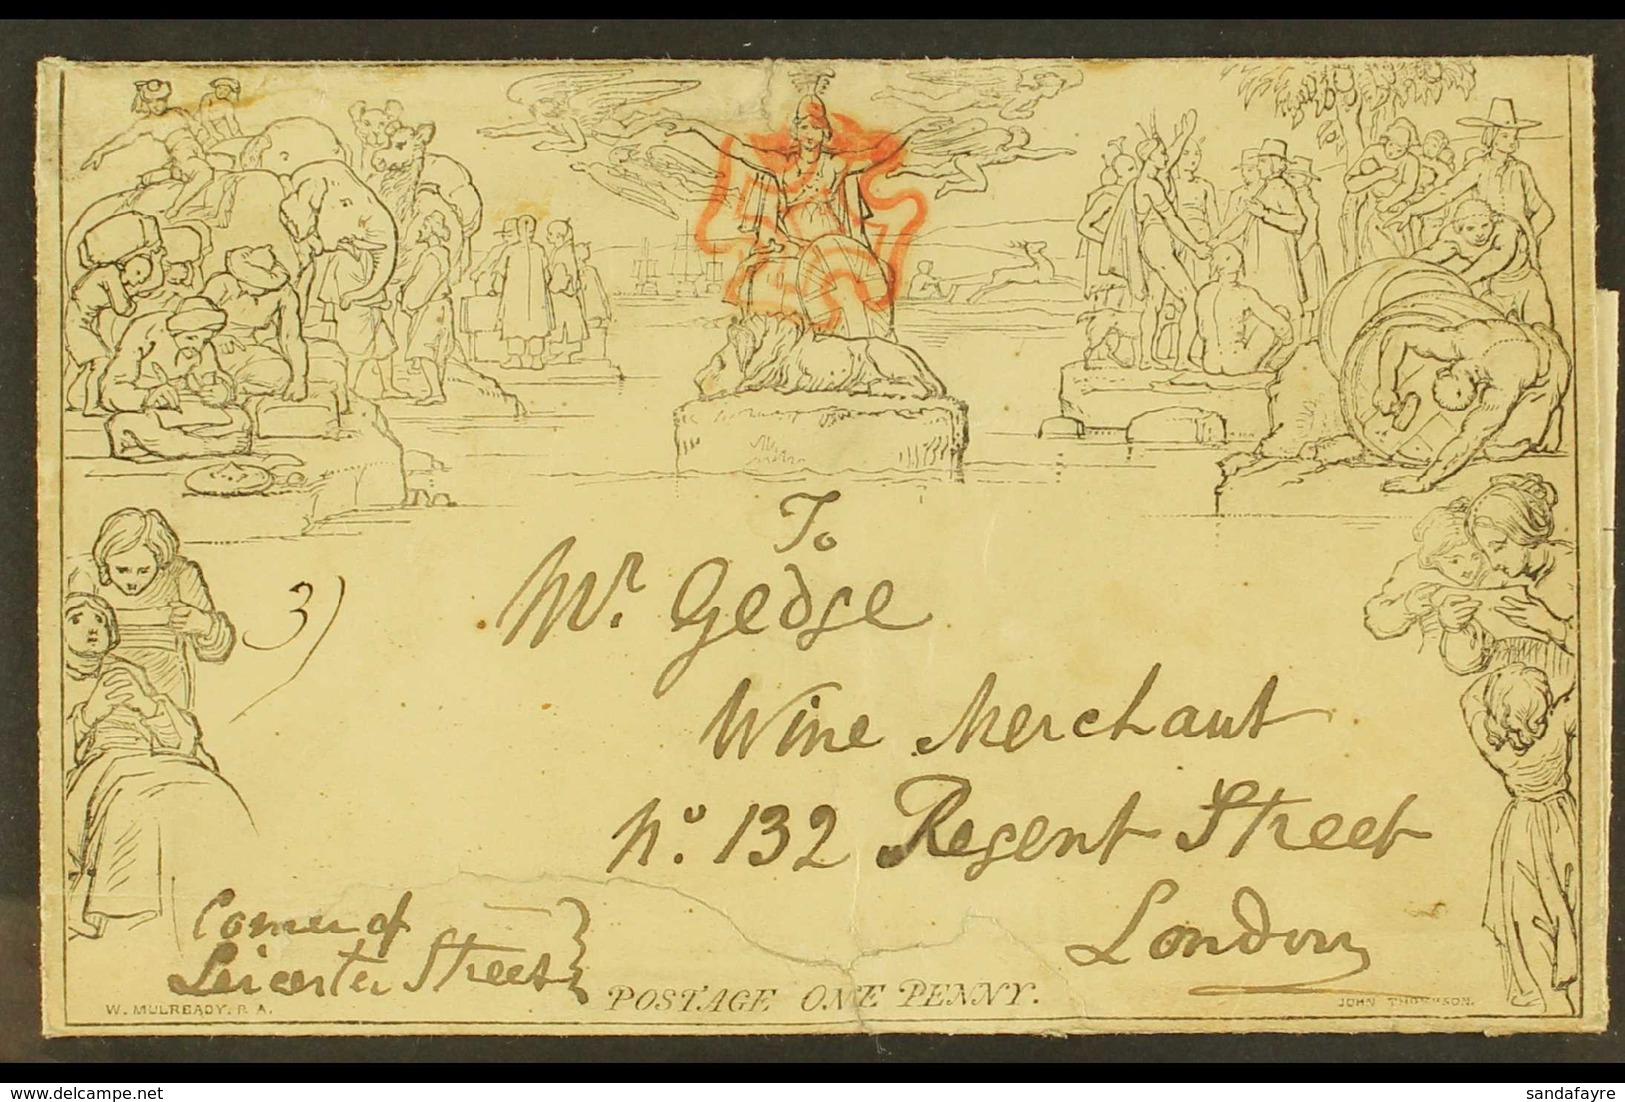 To
3)
Mr. Gedge
Wine Merchant
No. 132 Regent Street
London
Corner of
Leicester Street
POSTAGE ONE PENNY.
W. MULREADY. R A.
JOHN THOMPSON.
www.delcampe.net
sandafayre